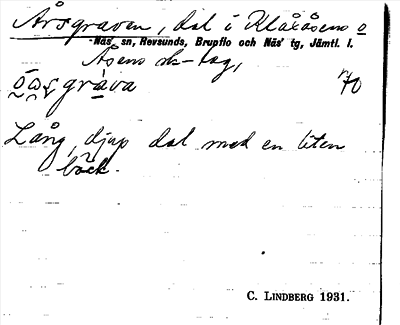 Årsgraven, dal i Klååsens o
Näs sn, Revsunds, Brunflo och Näs tg, Jämtl. l.
Åsens sk-lag,
gràva
70
Lång, djup dal med en liten
bäck.
C. LINDBERG 1931.